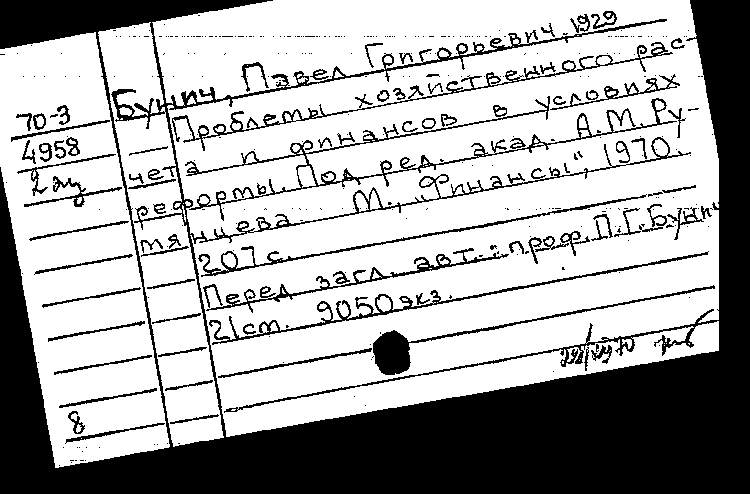 Бунич, Павел Григорьевич, 1929
70-3
Проблемы хозяйственного рас-
4958
чета и финансов в условиях
2 экз
реформы. Под ред. акад. А.М. Ру-
мянцева. М., „Финансы", 1970.
207 с.
Перед загл. авт.: проф. П.Г. Бунич
21 см. 9050 экз.
8